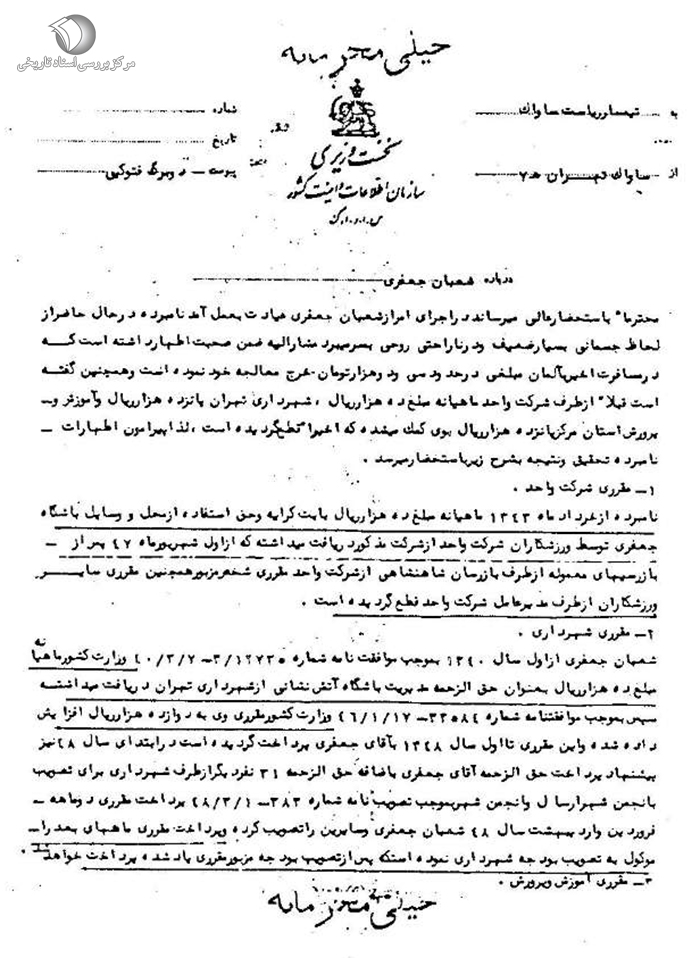 مرکز بررسی اسناد تاریخی
خیلی محرمانه
به تیمسار ریاست ساواک
شماره
نخست وزیری
تاریخ
از ساواک تهران ۷ه
پیوست ـ دو برگ فتوکپی
سازمان اطلاعات و امنیت کشور
س.ا.و.ا.ک
درباره شعبان جعفری
محترما" باستحضار عالی میرساند در اجرای امر از شعبان جعفری عیادت بعمل آمد نامبرده در حال حاضر از
لحاظ جسمانی بسیار ضعیف و در ناراحتی روحی بسر میبرد مشارالیه ضمن صحبت اظهار داشته است که
در مسافرت اخیر بآلمان مبلغی در حدود سی و دو هزار تومان خرج معالجه خود نموده است و همچنین گفته
است قبلا" از طرف شرکت واحد ماهیانه مبلغ ده هزار ریال ، شهرداری تهران پانزده هزار ریال و آموزش و ـ
پرورش استان مرکز پانزده هزار ریال بوی کمک میشده که اخیرا" قطع گردیده است ، لذا پیرامون اظهارات ـ
نامبرده تحقیق و نتیجه بشرح زیر باستحضار میرسد .
۱ـ مقرری شرکت واحد .
نامبرده از خرداد ماه ۱۳۴۳ ماهیانه مبلغ ده هزار ریال بابت کرایه وحق استفاده از محل و وسایل باشگاه
جعفری توسط ورزشکاران شرکت واحد از شرکت مذکور دریافت میداشته که از اول شهریور ماه ۴۷ پس از ـ
بازرسیهای معموله از طرف بازرسان شاهنشاهی از شرکت واحد مقرری شخص مزبور همچنین مقرری سایر
ورزشکاران از طرف مدیر عامل شرکت واحد قطع گردیده است .
۲ـ مقرری شهرداری .
شعبان جعفری از اول سال ۱۳۴۰ بموجب موافقت نامه شماره ۳/۱۲۷۳۵ـ ۴۰/۳/۷ وزارت کشور ماهیانه
مبلغ ده هزار ریال بعنوان حق الزحمه مدیریت باشگاه آتش نشانی از شهرداری تهران دریافت میداشته
سپس بموجب موافقتنامه شماره ۳۲۵۸۴ـ ۴۶/۱/۱۷ وزارت کشور مقرری وی به دوازده هزار ریال افزایش
داده شده و این مقرری تا اول سال ۱۳۴۸ بآقای جعفری پرداخت گردیده است در ابتدای سال ۴۸ نیز
پیشنهاد پرداخت حق الزحمه آقای جعفری باضافه حق الزحمه ۳۱ نفر دیگر از طرف شهرداری برای تصویب
بانجمن شهر ارسال و انجمن شهر بموجب تصویب نامه شماره ۳۸۳ـ ۴۸/۳/۱ پرداخت مقرری دوماهه ـ
فروردین و اردیبهشت سال ۴۸ شعبان جعفری وسایرین را تصویب کرده و پرداخت مقرری ماههای بعد را ـ
موکول به تصویب بودجه شهرداری نموده استکه پس از تصویب بودجه مزبور مقرری یاد شده پرداخت خواهد شد .
۳ـ مقرری آموزش و پرورش .
خیلی محرمانه